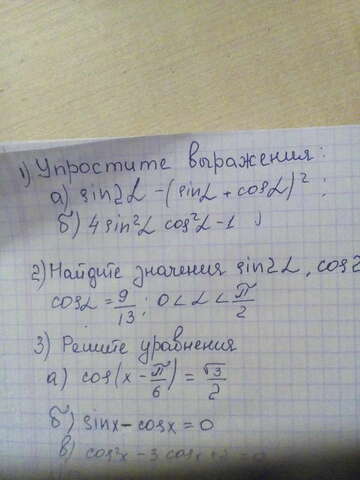 1) Упростите выражения:
а) sin2α - (sinα + cosα)²;
б) 4 sin²α cos²α - 1
2) Найдите значения sin2α, cos2
cosα = 9/13; 0 < α < π/2
3) Решите уравнения
а) cos(x - π/6) = √3/2
б) sinx - cosx = 0
в) cos²x - 3 cosx + 2 = 0